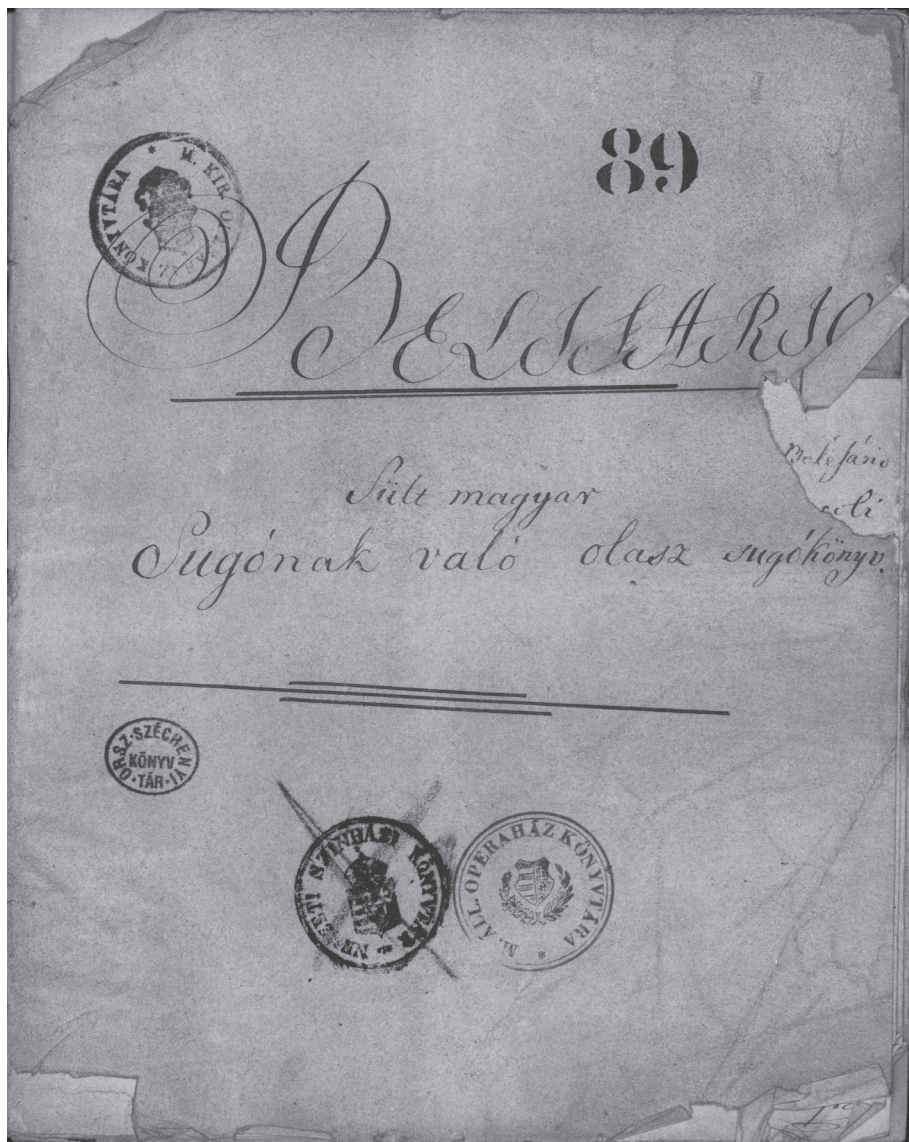 89
M. KIR. OPERAHÁZ KÖNYVTÁRA *
BELISARIO
Belisário
Sült magyar
Sugónak való olasz sugókönyv.
ORSZ. SZÉCHENYI
KÖNYV
TÁR
NEMZETI SZINHÁZ KÖNYVTÁRA
M. ÁLL. OPERAHÁZ KÖNYVTÁRA *